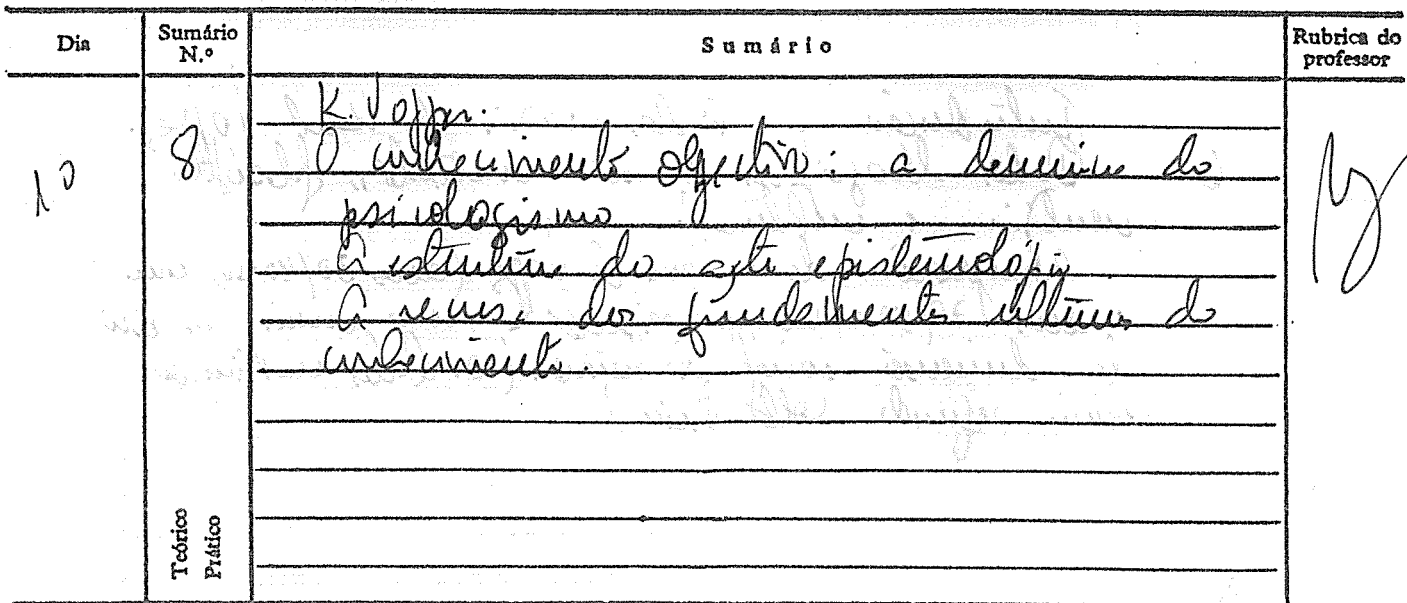 Dia
Sumário N.º
Sumário
Rubrica do professor
10
8
K. Popper.
O conhecimento objectivo: a denúncia do
psicologismo
A estrutura do acto epistemológico
A recusa dos fundamentos últimos do
conhecimento.
Teórico
Prático